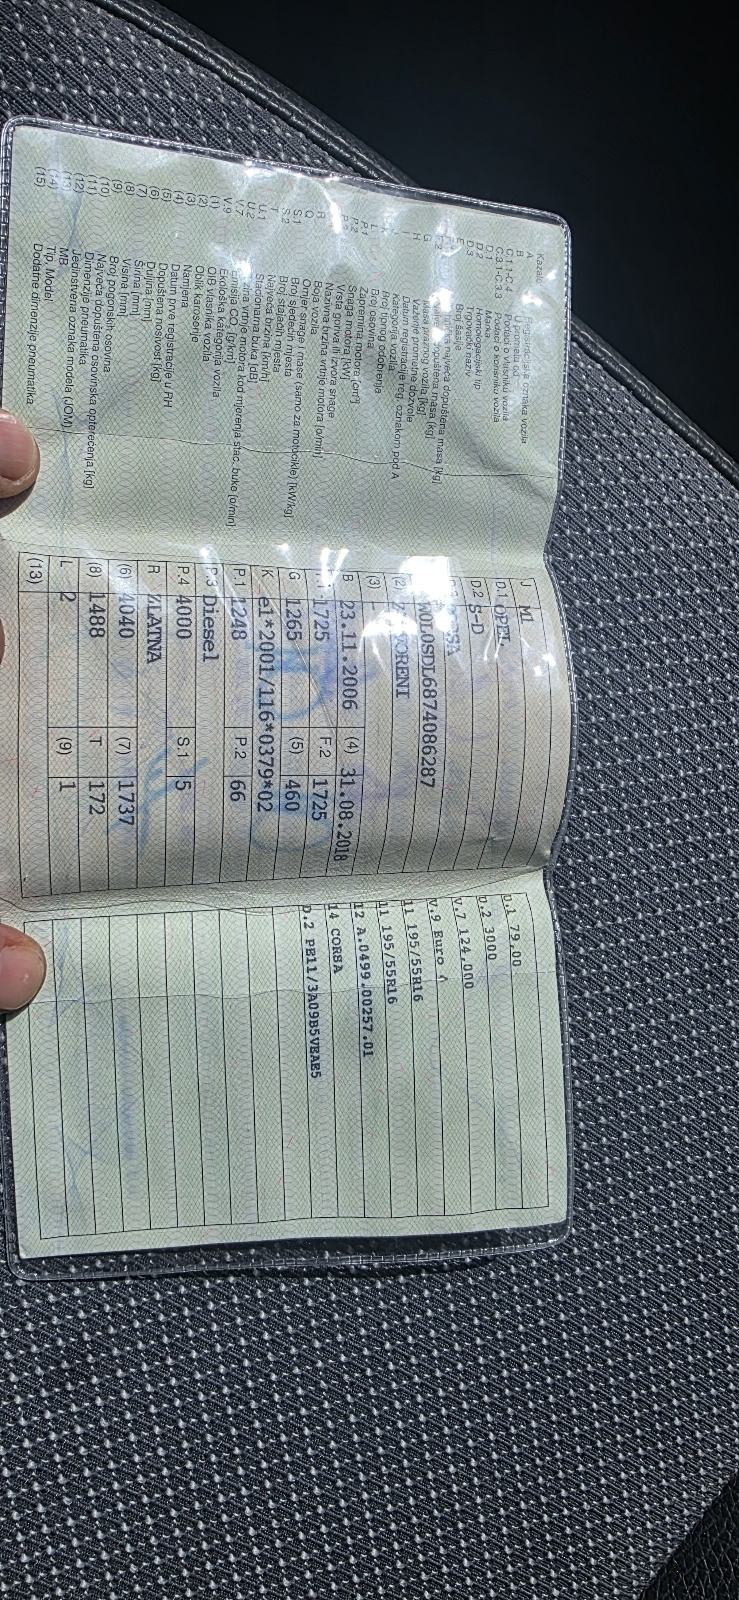 Kazalo
A Registarska oznaka vozila
B u prometu od
C.1.1-C.4 Podaci o vlasniku vozila
C.3.1-C.3.3 Podaci o korisniku vozila
D.1 Marka
D.2 Homologacijski tip
D.3 Trgovački naziv
E Broj šasije
najveća dopuštena masa [kg]
dopuštena masa [kg]
G Masa praznog vozila [kg]
Važenje prometne dozvole
I Datum registracije reg. oznakom pod A
J Kategorija vozila
K Broj tipnog odobrenja
L Broj osovina
P.1 Zapremina motora [cm³]
P.2 Snaga motora [kW]
P.3 Vrsta goriva ili izvora snage
Nazivna brzina vrtnje motora [o/min]
R Boja vozila
Q Omjer snage i mase (samo za motocikle) [kW/kg]
S.1 Broj sjedećih mjesta
S.2 Broj stajaćih mjesta
T Najveća brzina [km/h]
U.1 Stacionarna buka [dB]
U.2 Brzina vrtnje motora kod mjerenja stac. buke [o/min]
V.7 Emisija CO₂ [g/km]
V.9 Ekološka kategorija vozila
(1) OIB vlasnika vozila
(2) Oblik karoserije
(3) Namjena
(4) Datum prve registracije u RH
(5) Dopuštena nosivost [kg]
(6) Duljina [mm]
(7) Širina [mm]
(8) Visina [mm]
(9) Broj pogonskih osovina
(10) Najveća dopuštena osovinska opterećenja [kg]
(11) Dimenzije pneumatika
(12) Jedinstvena oznaka modela (JOM)
(13) MB
(14) Tip, Model
(15) Dodatne dimenzije pneumatika
J M1
D.1 OPEL
D.2 S-D
W0L0SDL6874086287
(2)
(3) -
B 23.11.2006 (4) 31.08.2018
1725 F.2 1725
G 1265 (5) 460
K e1*2001/116*0379*02
P.1 1248 P.2 66
P.3 Diesel
P.4 4000 S.1 5
R ZLATNA
(6) 4040 (7) 1737
(8) 1488 T 172
L 2 (9) 1
(13)
U.1 79.00
U.2 3000
V.7 124.000
V.9 Euro 4
11 195/55R16
11 195/55R16
12 A.0499.00257.01
14 CORSA
D.2 PB11/3A09B5VEAE5